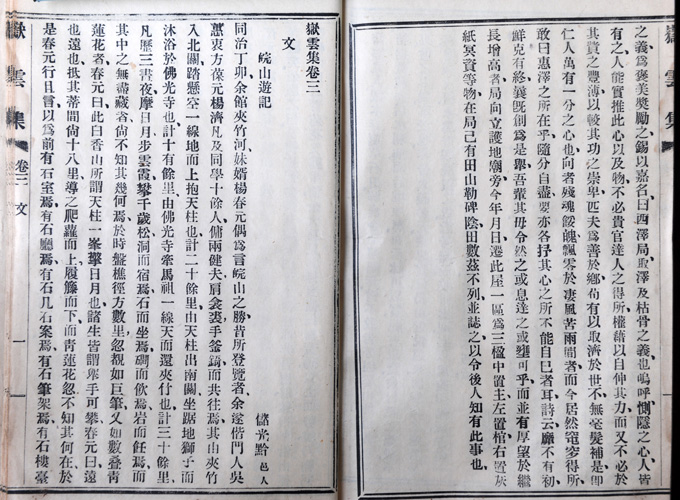 之義爲褒美獎勵之錫以嘉名曰西澤局取澤及枯骨之義也嗚呼惻隱之心人皆
有之人能實推此心以及物不必貴官達人之得所權藉以自伸其力而又不必於
其貲之豐薄以較其功之崇卑匹夫爲善於鄉茍有以取濟於世不無毫髮補是卽
仁人萬有一分之心也向者殘魂餒魄飄零於凄風苦雨間者而今居然窀穸得所
敢曰惠澤之所在乎隨分自盡要亦各抒其心之所不能自巳者耳詩云靡不有初
鮮克有終義旣創爲是舉吾輩其毋令然之或息達之或壅可乎而並有厚望於繼
長增高者局向立護地廟旁今年月日遷此屋一區爲三楹中置主左置棺右置灰
紙冥資等物在局已有田山勒碑陰田數茲不列並誌之以令後人知有此事也
嶽雲集卷三
文
皖山遊記
儲光黔 邑人
同治丁卯余館夾竹河妹婿楊春元偶爲言皖山之勝昔所登覽者余遂偕門人吳
蕙衷方葆元楊濟凡及同學十餘人傭兩健夫肩衾裘手釜鑄而共往焉其由夾竹
入北關踏懸空一線地而上抱天柱也計二十餘里由天柱出南關坐踞地獅子而
沐浴於佛光寺也計十有餘里由佛光寺牽馬祖一線天而還夾竹也計三十餘里
凡歷三晝夜摩日月步雲霞攀千歲松洞而宿焉石而坐焉磵而飲焉岩而飪焉而
其中之無盡藏者尙不知其幾何焉於時盤樵徑方數里忽覩如巨筆又如數疊靑
蓮花者春元曰此白香山所謂天柱一峯擎日月也諸生皆謂舉手可攀春元曰遠
也遠也抵其蒂間尙十八里導之爬蘿而上履籐而下而靑蓮花忽不知其何在於
是春元行且言以爲前有石室焉有石廳焉有石几石案焉有石筆架焉有石樓臺
嶽雲集
卷三 文
一